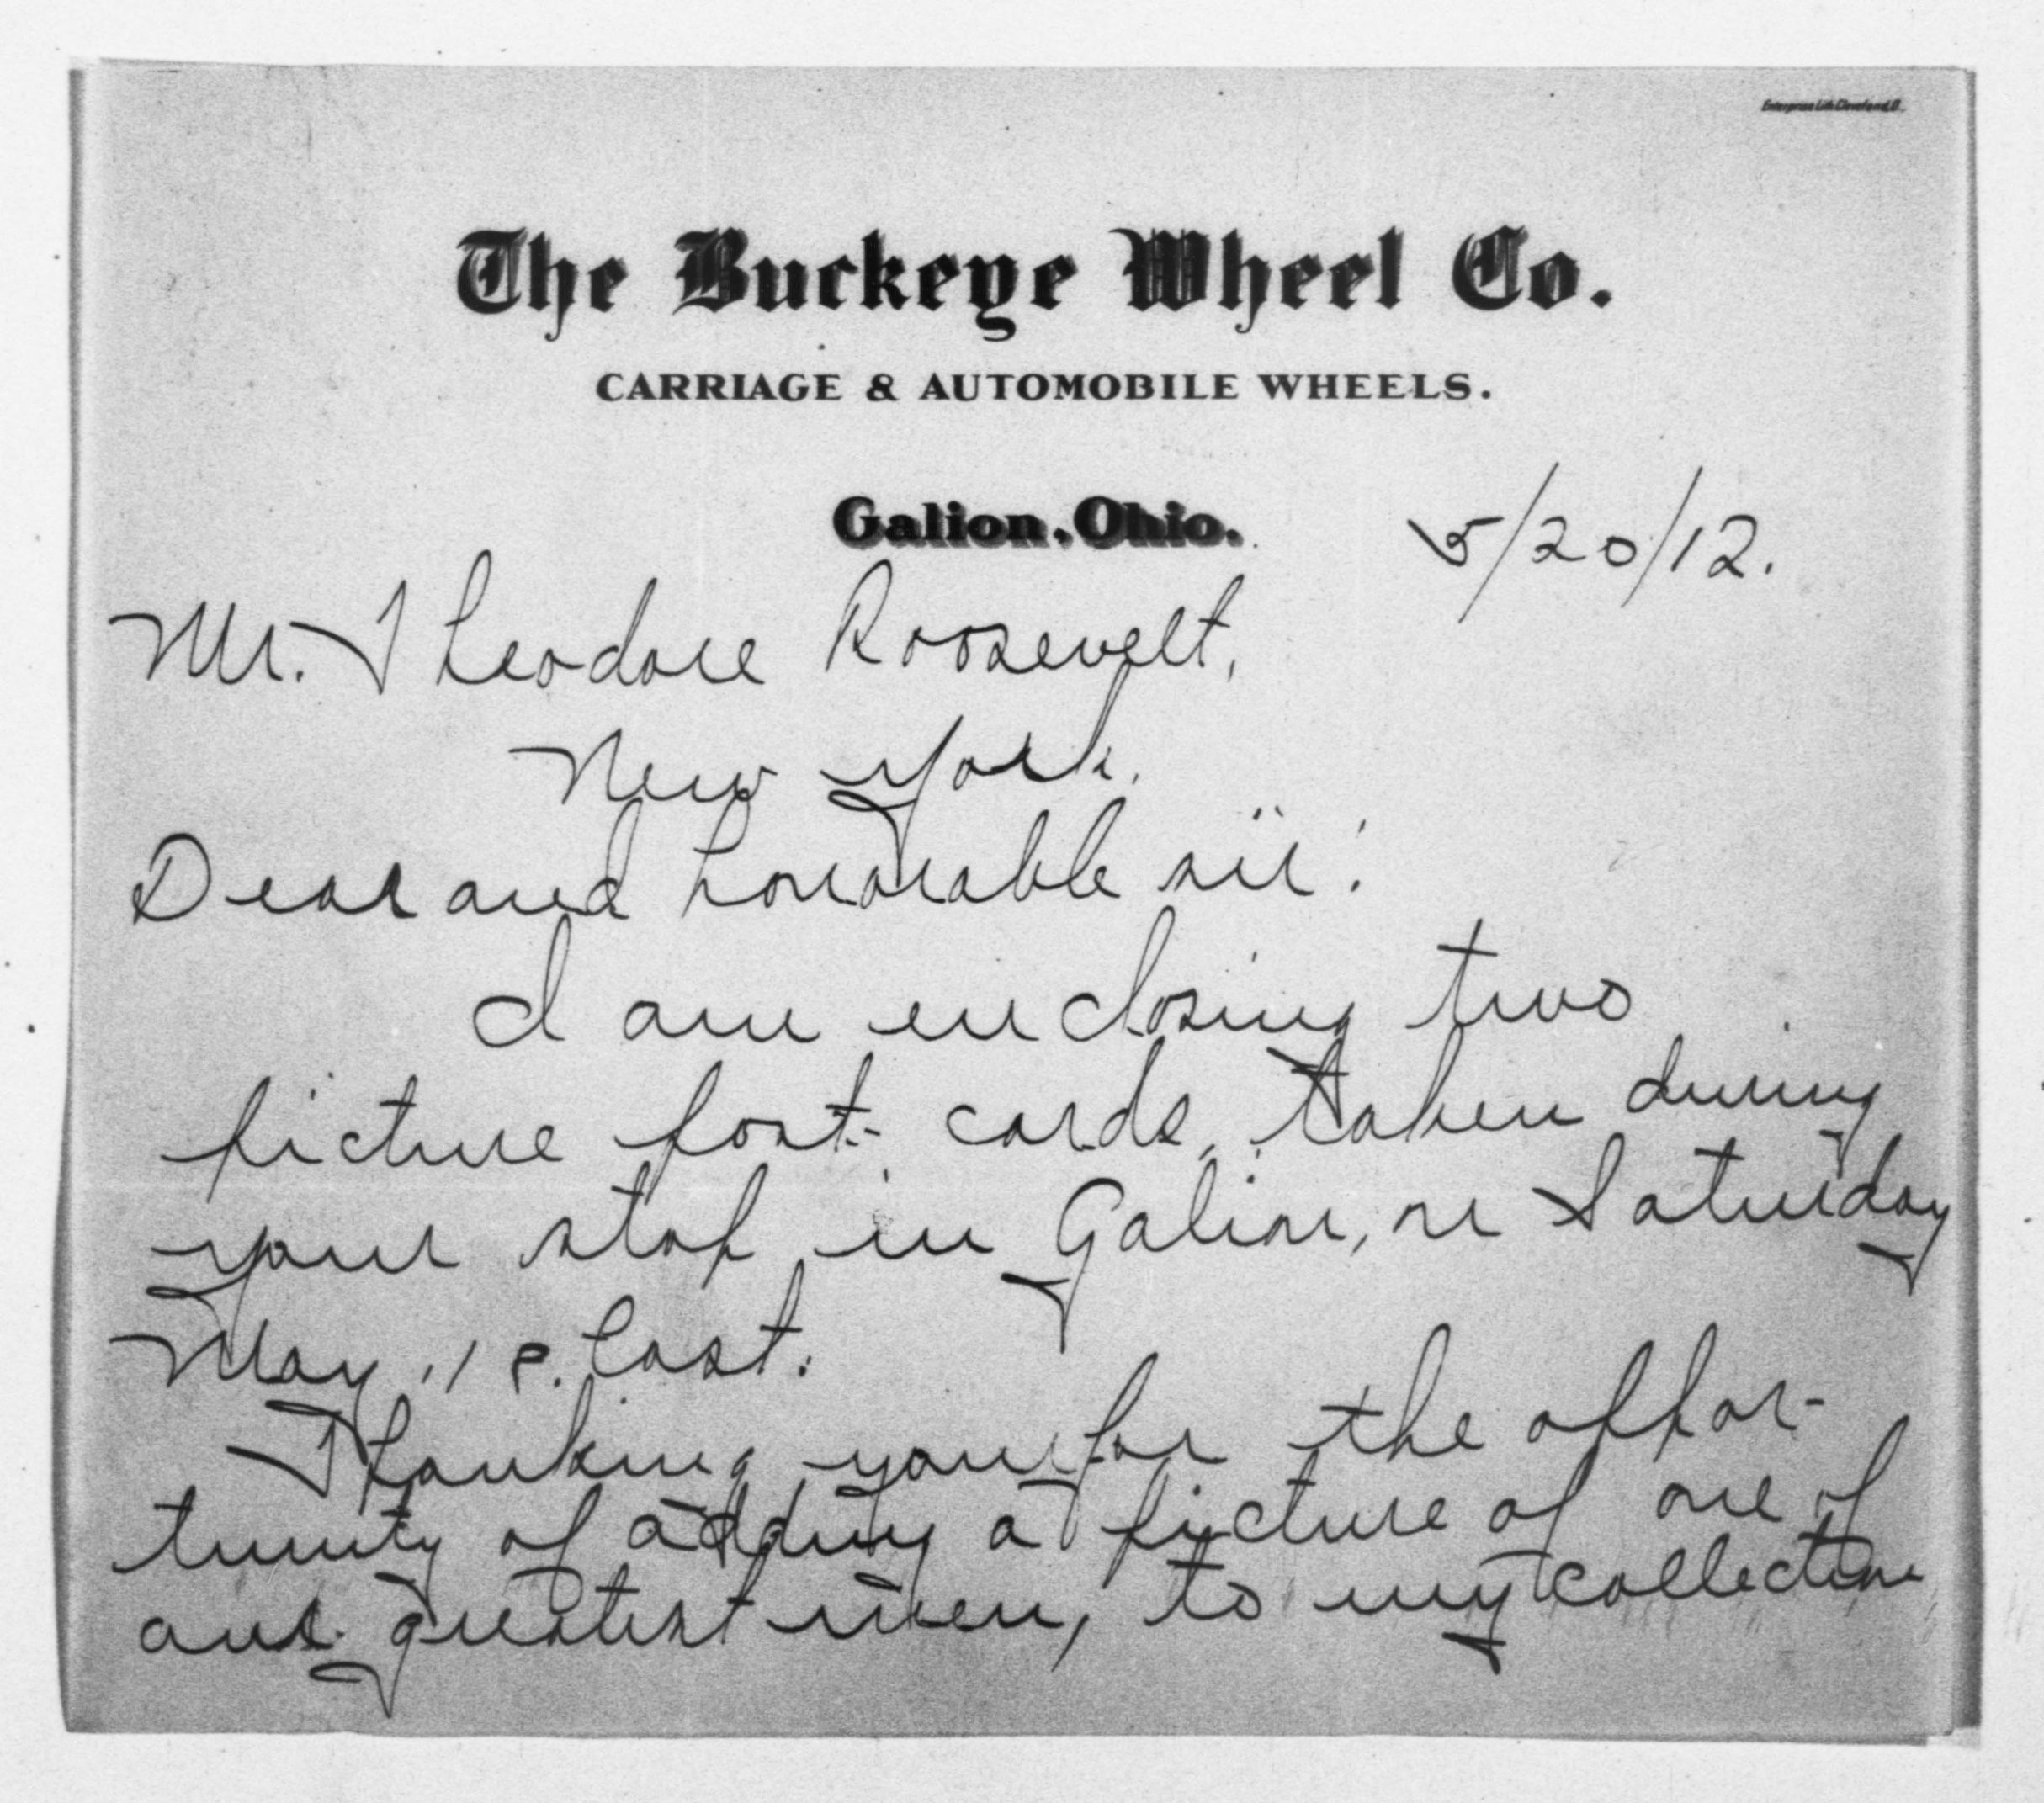 Enterprise Lith Cleveland, O.
The Buckeye Wheel Co.
CARRIAGE & AUTOMOBILE WHEELS.
Galion, Ohio.
5/20/12.
Mr. Theodore Roosevelt,
New York.
Dear and honorable sir:
I am enclosing two
picture post-cards, taken during
your stop in Galion, on Saturday
May, 18. last.
Thanking you for the oppor-
tunity of adding a picture of one of
our greatest men, to my collection